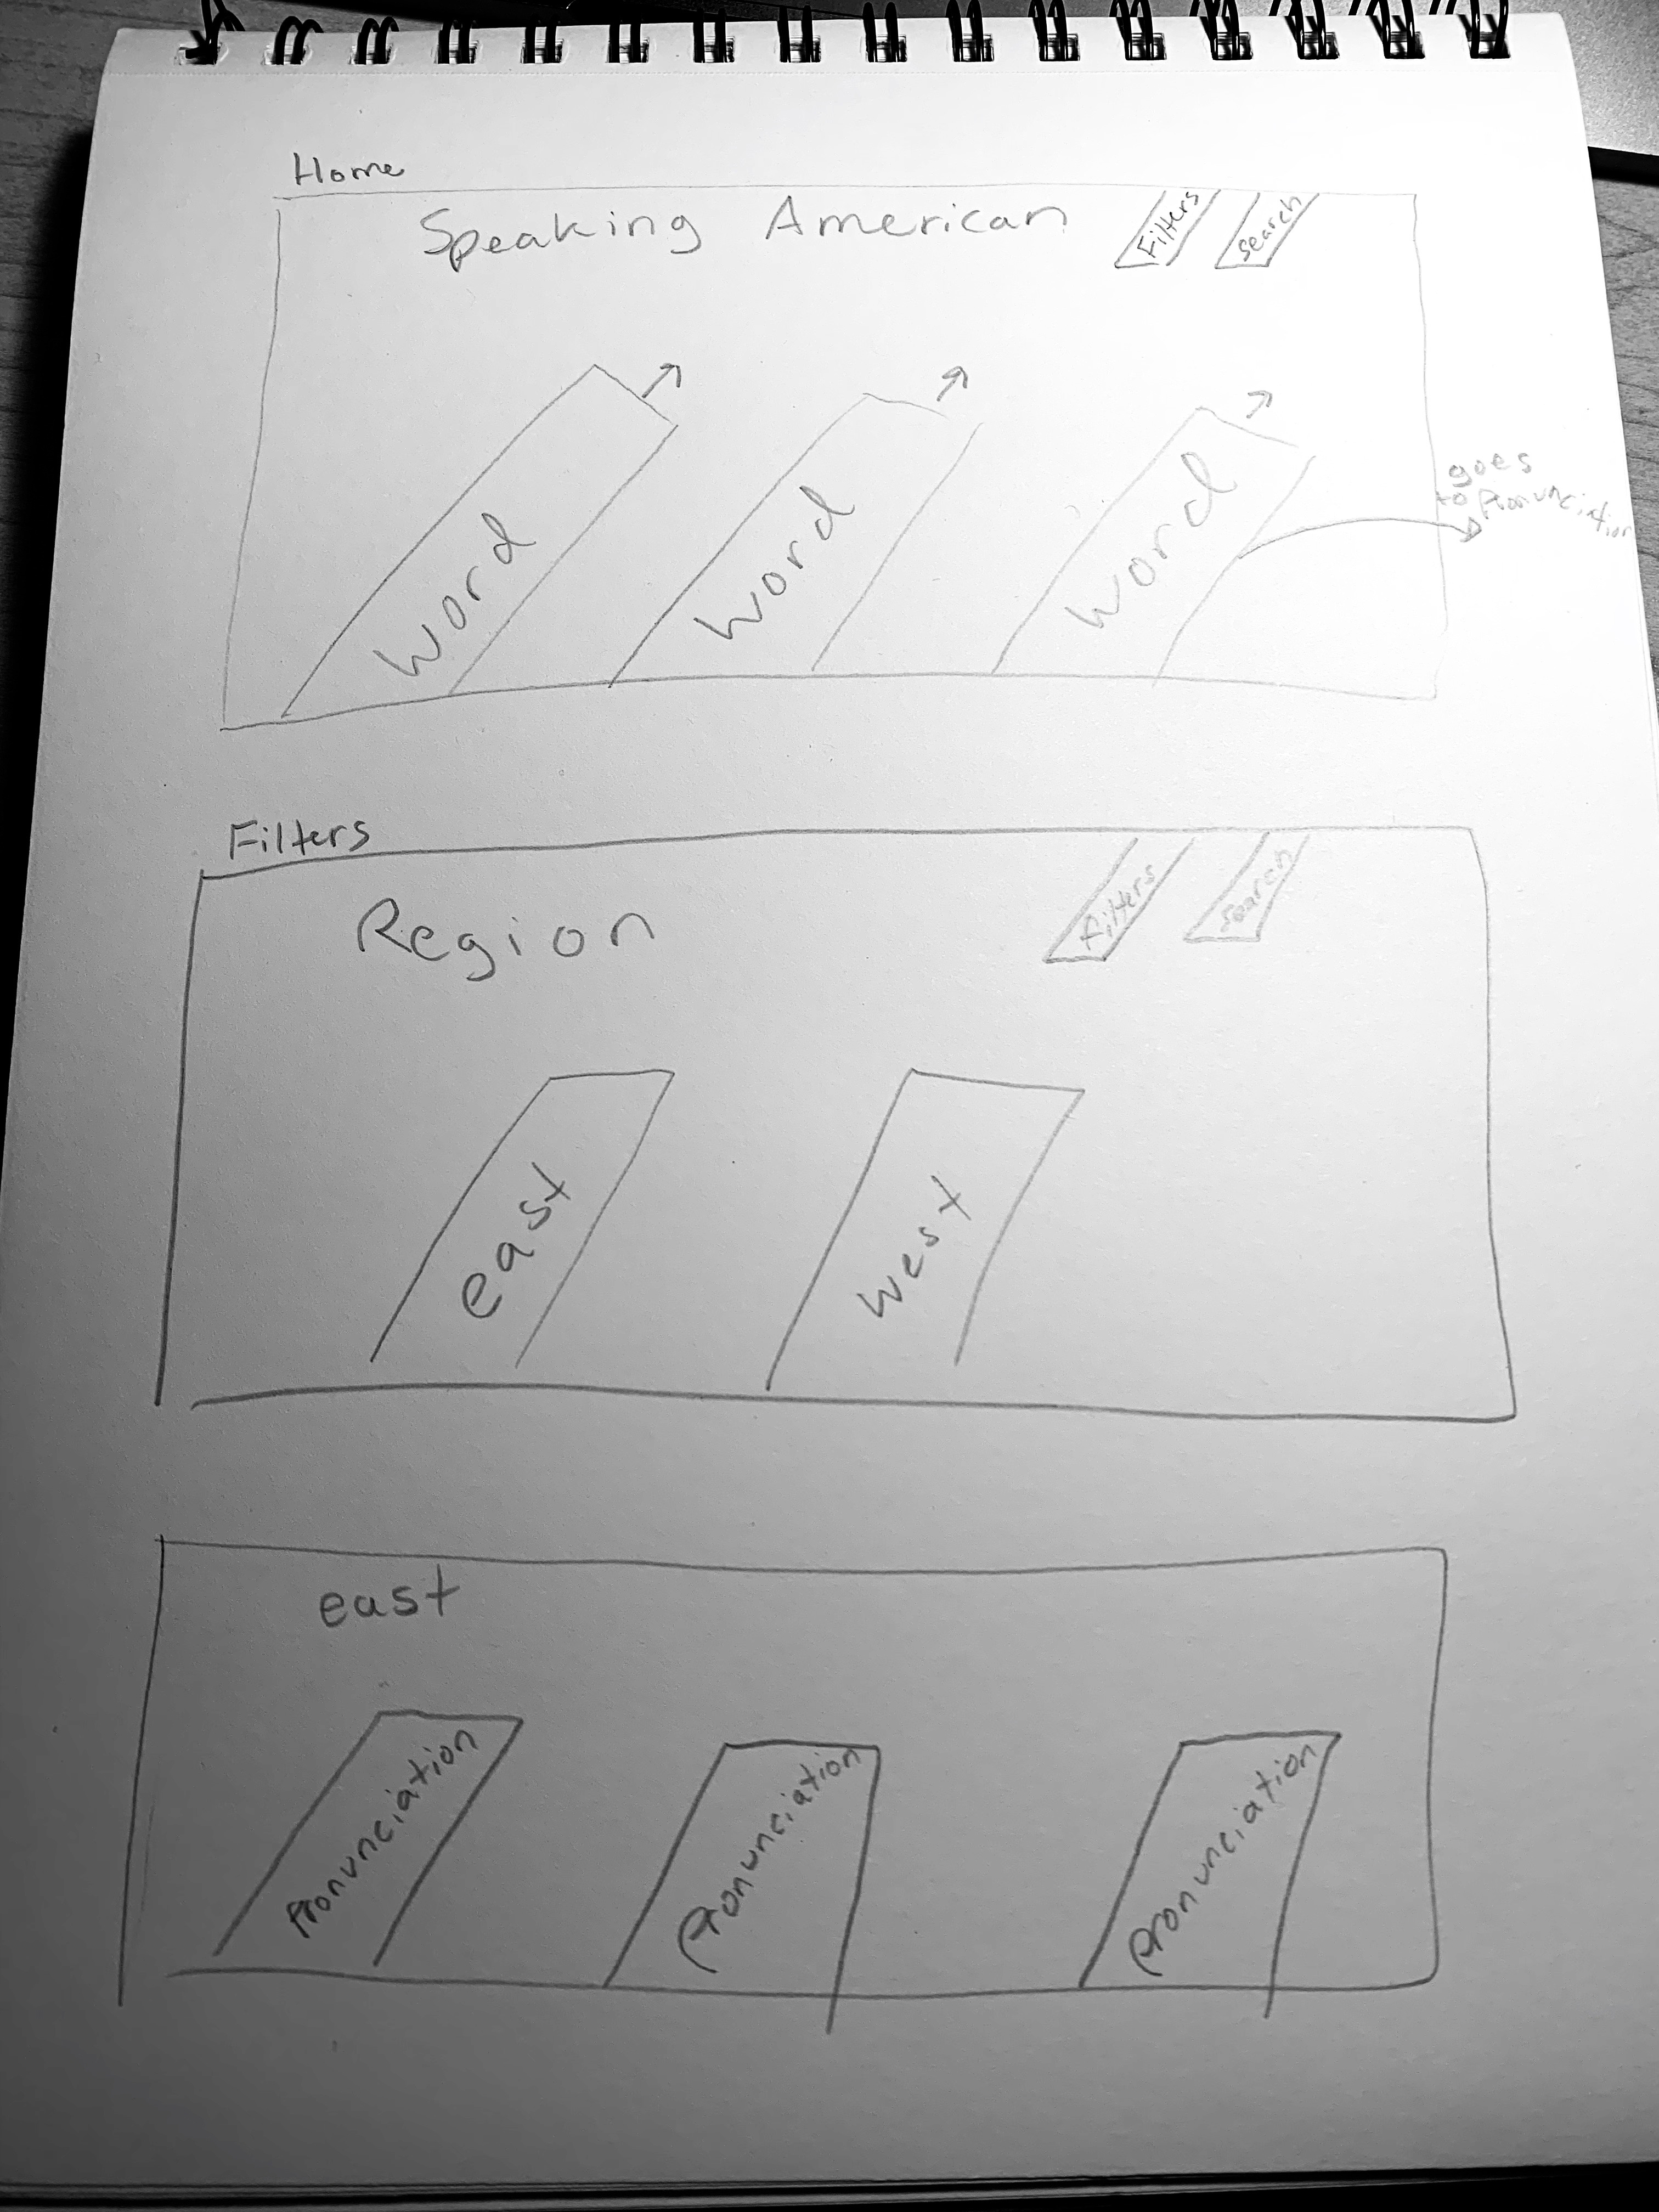 Home
Speaking American
Filters
Search
word
word
word
goes
to Pronunciation
Filters
Region
Filters
Search
east
west
east
Pronunciation
Pronunciation
Pronunciation